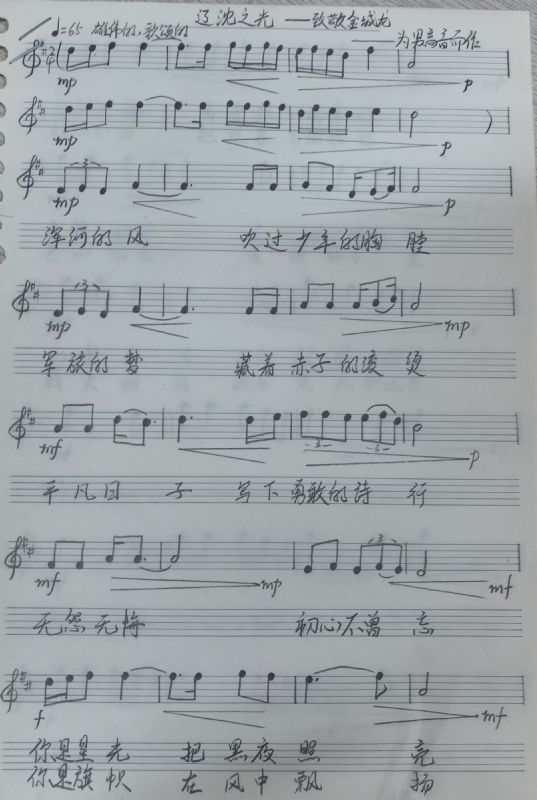 辽沈之光 ——致敬金城龙
♩=65 雄伟的、歌颂的
——为男高音而作
mp p
mp p
mp p
浑河的风 吹过少年的胸膛
mp mp
军旅的梦 藏着赤子的滚烫
mf p
平凡日子 写下勇敢的诗行
mf mp mf
无怨无悔 初心不曾忘
f mf
你是星光 把黑夜照亮
你是旗帜 在风中飘扬